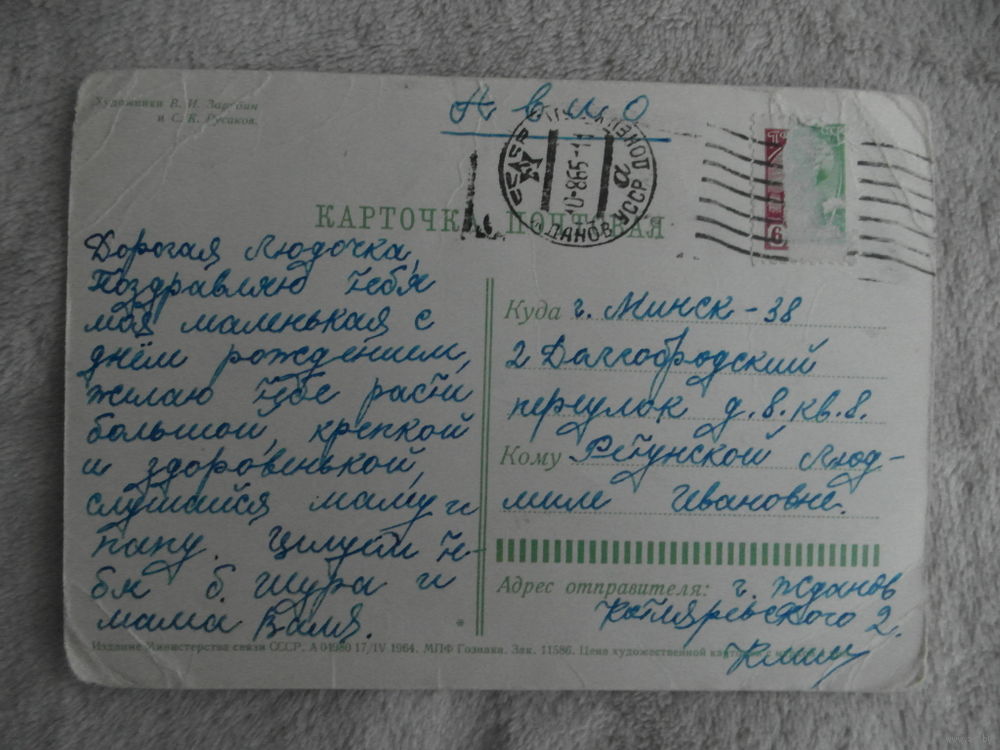 Художники В. И. Зарубин
и С. К. Русаков.
Авио
СССР
10-865-11
ЖДАНОВ УССР ДОНЕЦК
а
6
КАРТОЧКА ПОЧТОВАЯ
Дорогая Людочка,
Поздравляю тебя
моя маленькая с
днём рождением,
желаю тебе расти
большой, крепкой
и здоровенькой,
слушайся маму и
папу. Целуем те-
бя б. Шура и
мама Валя.
Куда г. Минск-38
2 Долгобродский
переулок д.8.кв.8.
Кому Ретунской Люд-
миле Ивановне.
Адрес отправителя: г. Жданов
Котляревского 2.
Клим
Издание Министерства связи СССР. А 04980 17/IV 1964. МПФ Гознака. Зак. 11586. Цена художественной